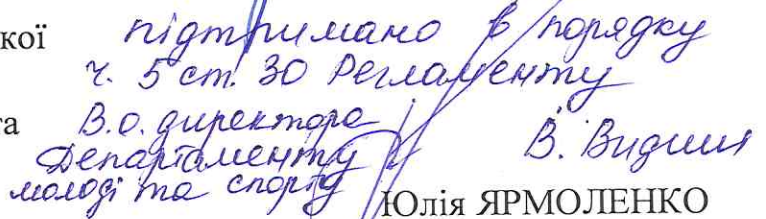 кої підтримано в порядку
ч. 5 ст. 30 Регламенту
та В.о. директора
Департаменту В. Видиш
молоді та спорту
Юлія ЯРМОЛЕНКО